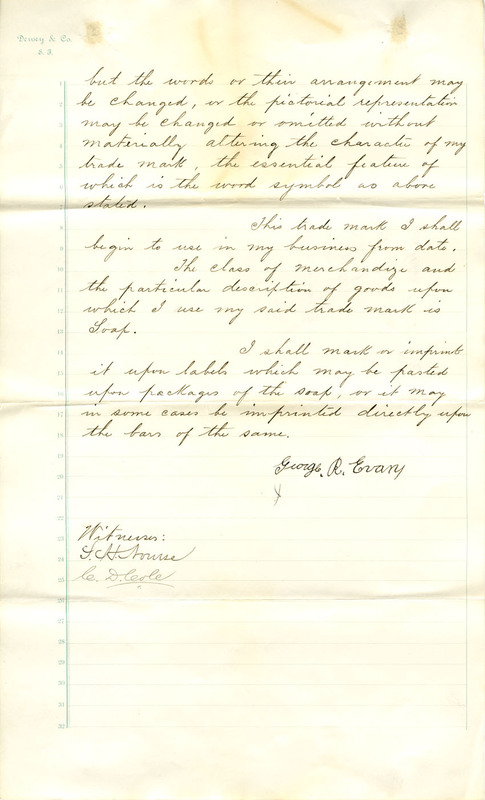 Dewey & Co.
S. F.
1 but the words or their arrangement may
2 be changed, or the pictorial representation
3 may be changed or omitted without
4 materially altering the character of my
5 trade mark, the essential feature of
6 which is the word symbol as above
7 stated.
8 This trade mark I shall
9 begin to use in my business from date.
10 The class of merchandize and
11 the particular description of goods upon
12 which I use my said trade mark is
13 Soap.
14 I shall mark or imprint
15 it upon labels which may be pasted
16 upon packages of the soap, or it may
17 in some cases be imprinted directly upon
18 the bars of the same.
19
20 George R. Evans
21
22
23 Witnesses:
24 S. H. Nourse
25 C. D. Cole
26
27
28
29
30
31
32